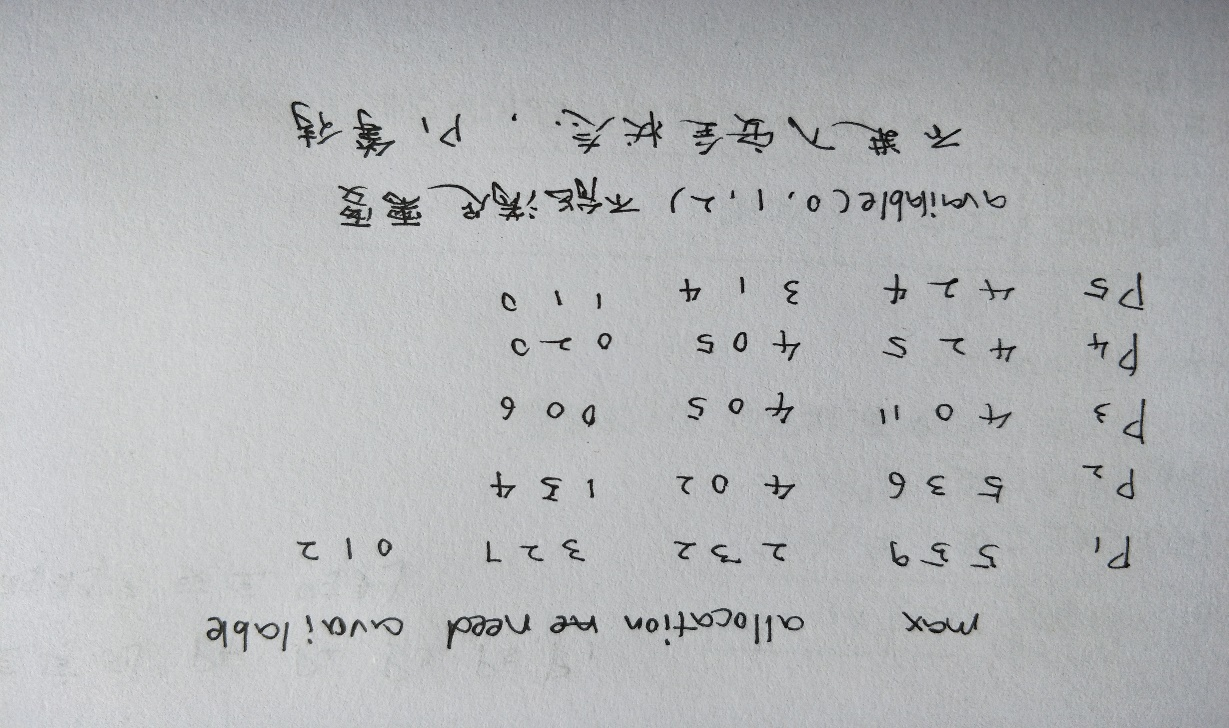 max allocation need available
P1 5 5 9 2 3 2 3 2 7 0 1 2
P2 5 3 6 4 0 2 1 3 4
P3 4 0 11 4 0 5 0 0 6
P4 4 2 5 4 0 5 0 2 0
P5 4 2 4 3 1 4 1 1 0
available(0,1,2) 不能满足需要
不进入安全状态. , P1 等待